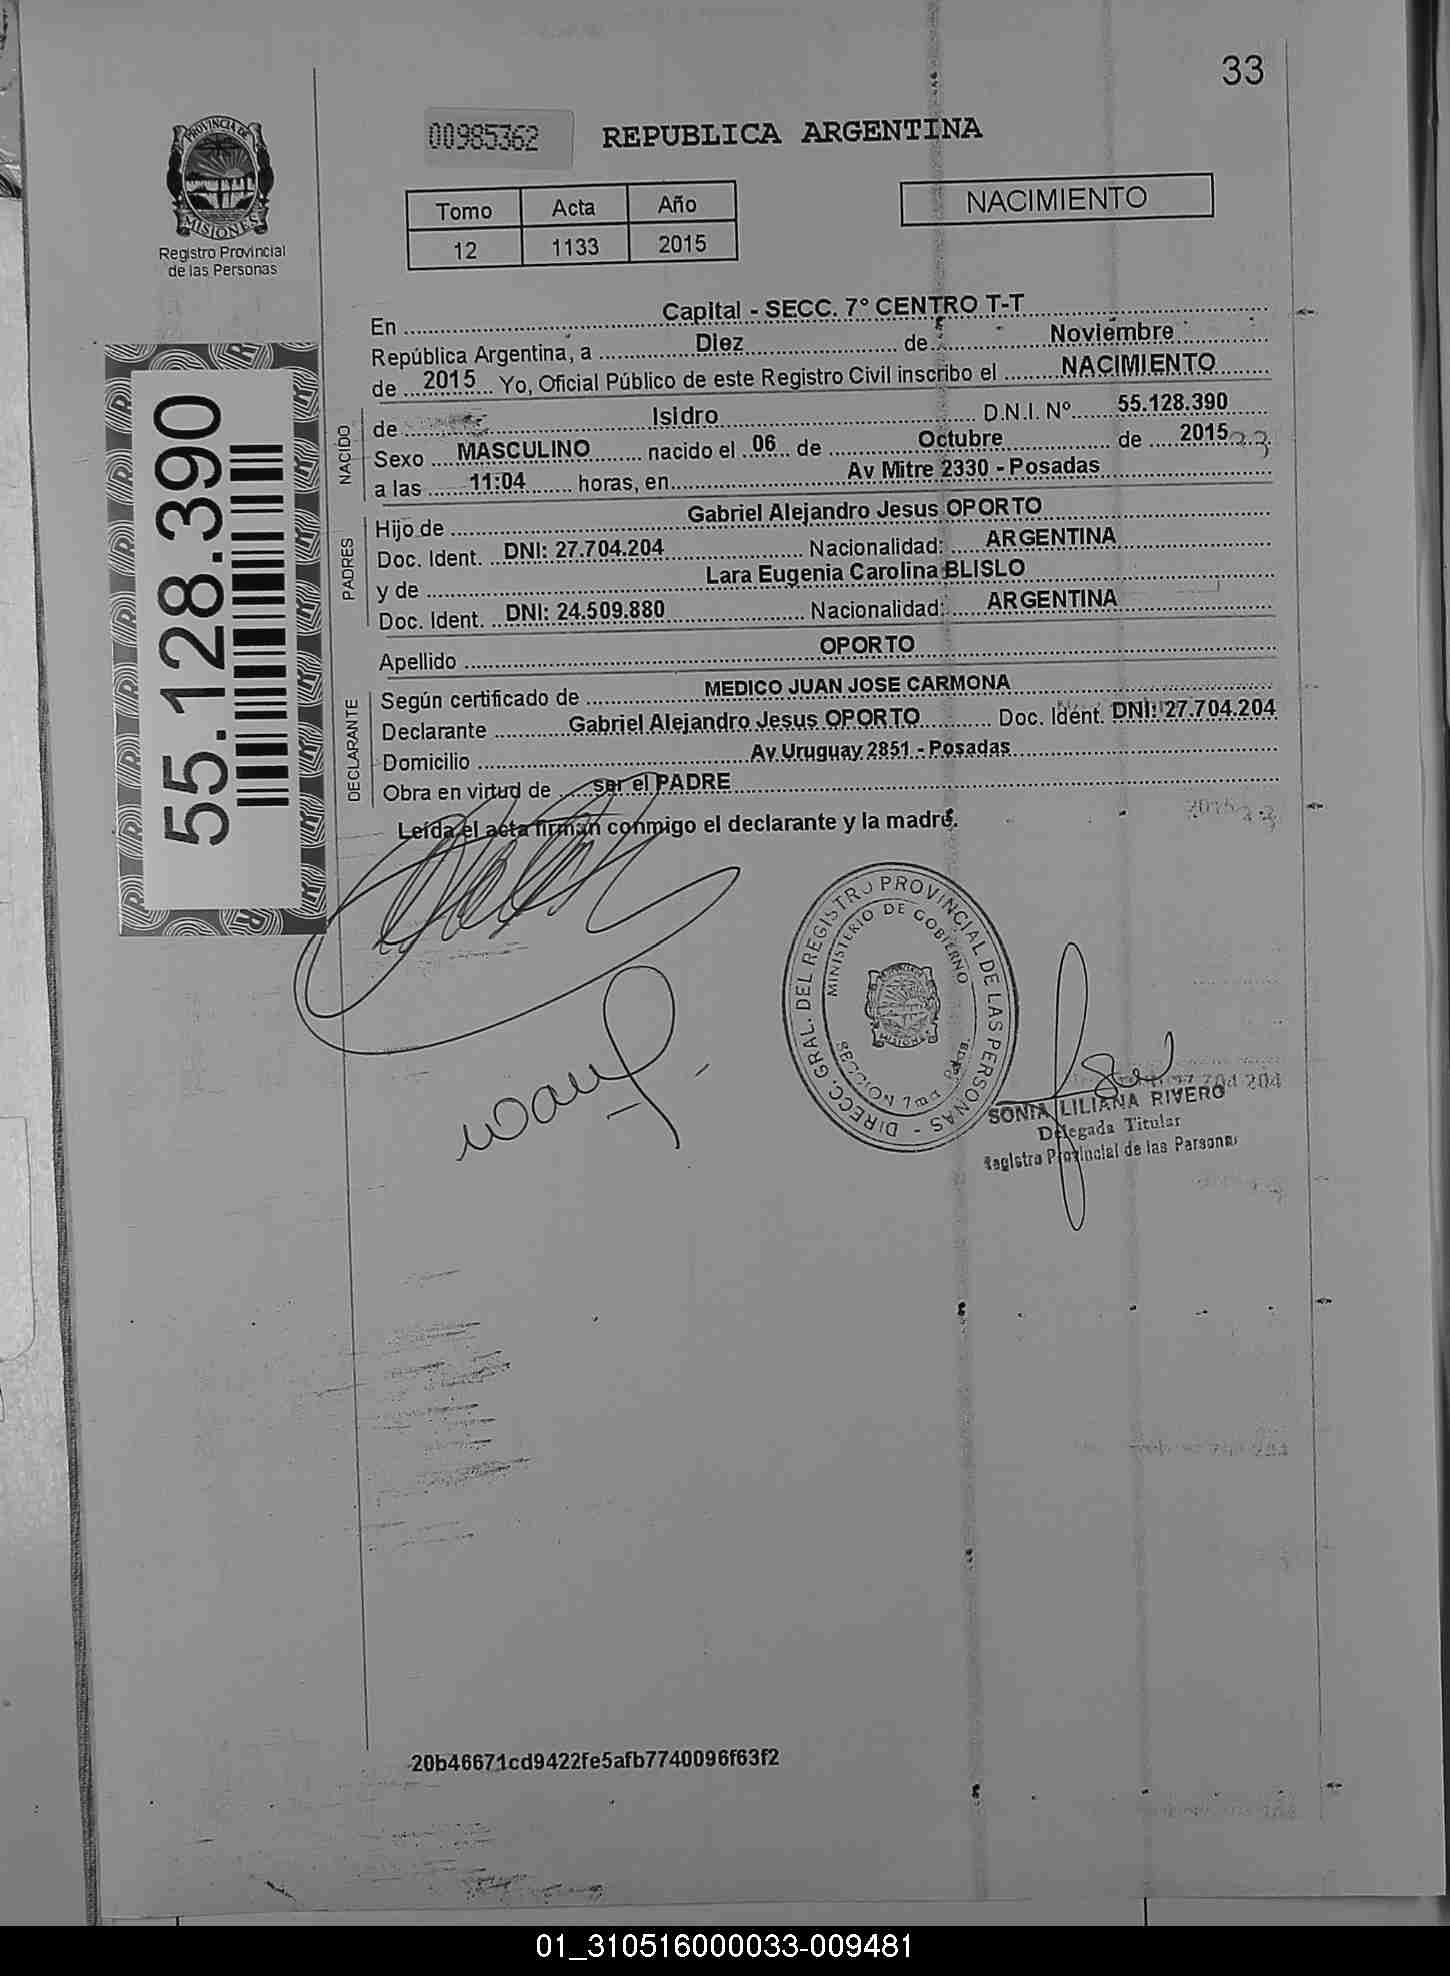 33
PROVINCIA DE
MISIONES
Registro Provincial
de las Personas
00985362
REPUBLICA ARGENTINA
Tomo Acta Año
12 1133 2015
NACIMIENTO
55.128.390
En Capital - SECC. 7° CENTRO T-T
República Argentina, a Diez de Noviembre
de 2015 Yo, Oficial Público de este Registro Civil inscribo el NACIMIENTO
NACIDO
de Isidro D.N.I. Nº 55.128.390
Sexo MASCULINO nacido el 06 de Octubre de 2015
a las 11:04 horas, en Av Mitre 2330 - Posadas
PADRES
Hijo de Gabriel Alejandro Jesus OPORTO
Doc. Ident. DNI: 27.704.204 Nacionalidad: ARGENTINA
y de Lara Eugenia Carolina BLISLO
Doc. Ident. DNI: 24.509.880 Nacionalidad: ARGENTINA
Apellido OPORTO
DECLARANTE
Según certificado de MEDICO JUAN JOSE CARMONA
Declarante Gabriel Alejandro Jesus OPORTO Doc. Ident. DNI: 27.704.204
Domicilio Av Uruguay 2851 - Posadas
Obra en virtud de ser el PADRE
Leída el acta firman conmigo el declarante y la madre.
DIRECC. GRAL. DEL REGISTRO PROVINCIAL DE LAS PERSONAS -
MINISTERIO DE GOBIERNO
SECCION 7ma Pdas.
SONIA LILIANA RIVERO
Delegada Titular
Registro Provincial de las Personas
20b46671cd9422fe5afb7740096f63f2
01_310516000033-009481